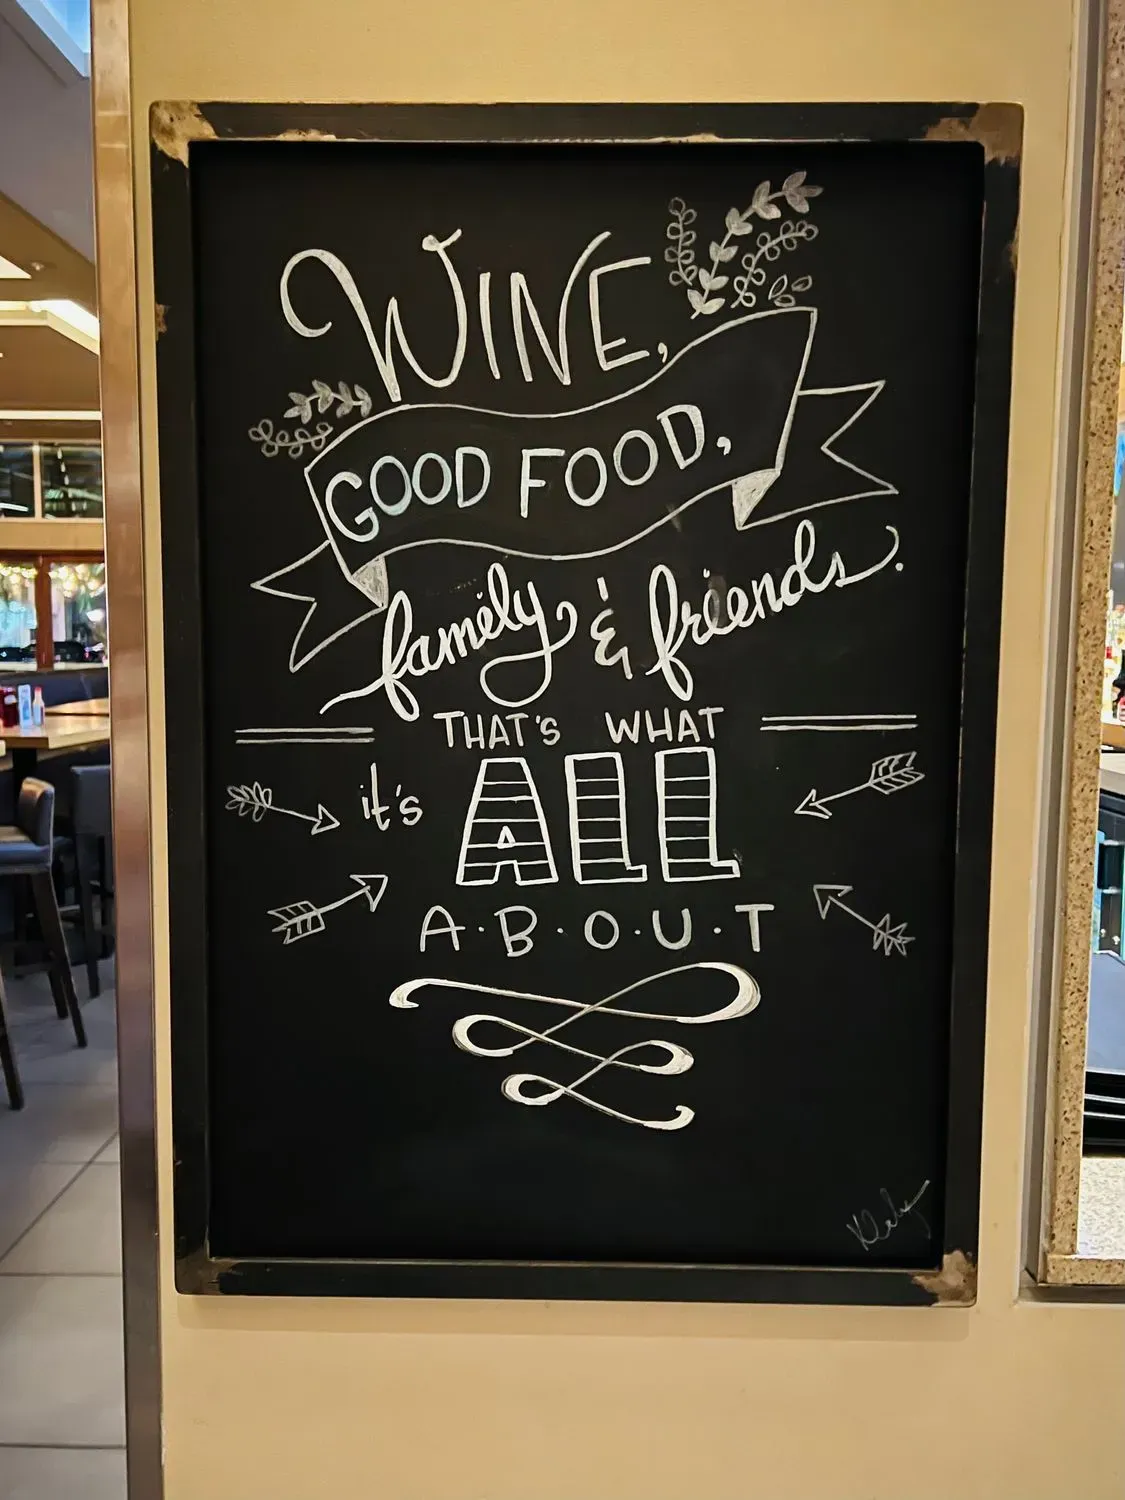 WINE,
GOOD FOOD,
family & friends.
THAT'S WHAT
it's ALL
A·B·O·U·T